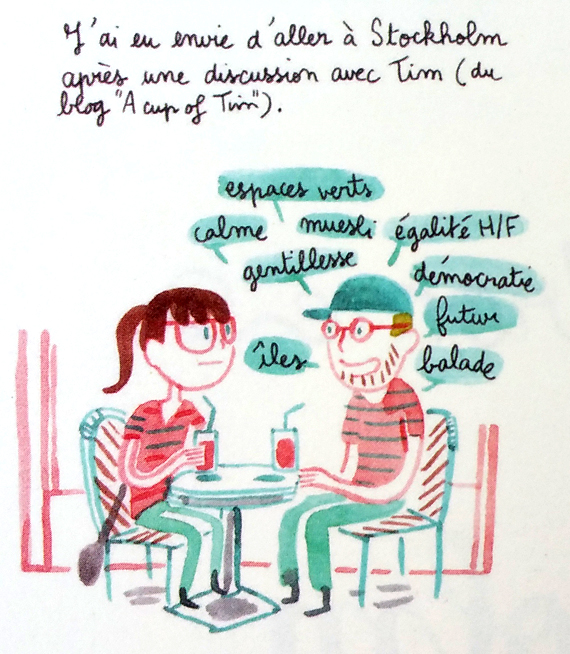 J'ai eu envie d'aller à Stockholm
après une discussion avec Tim (du
blog "A cup of Tim").
espaces verts
calme
muesli
égalité H/F
gentillesse
démocratie
futur
îles
balade